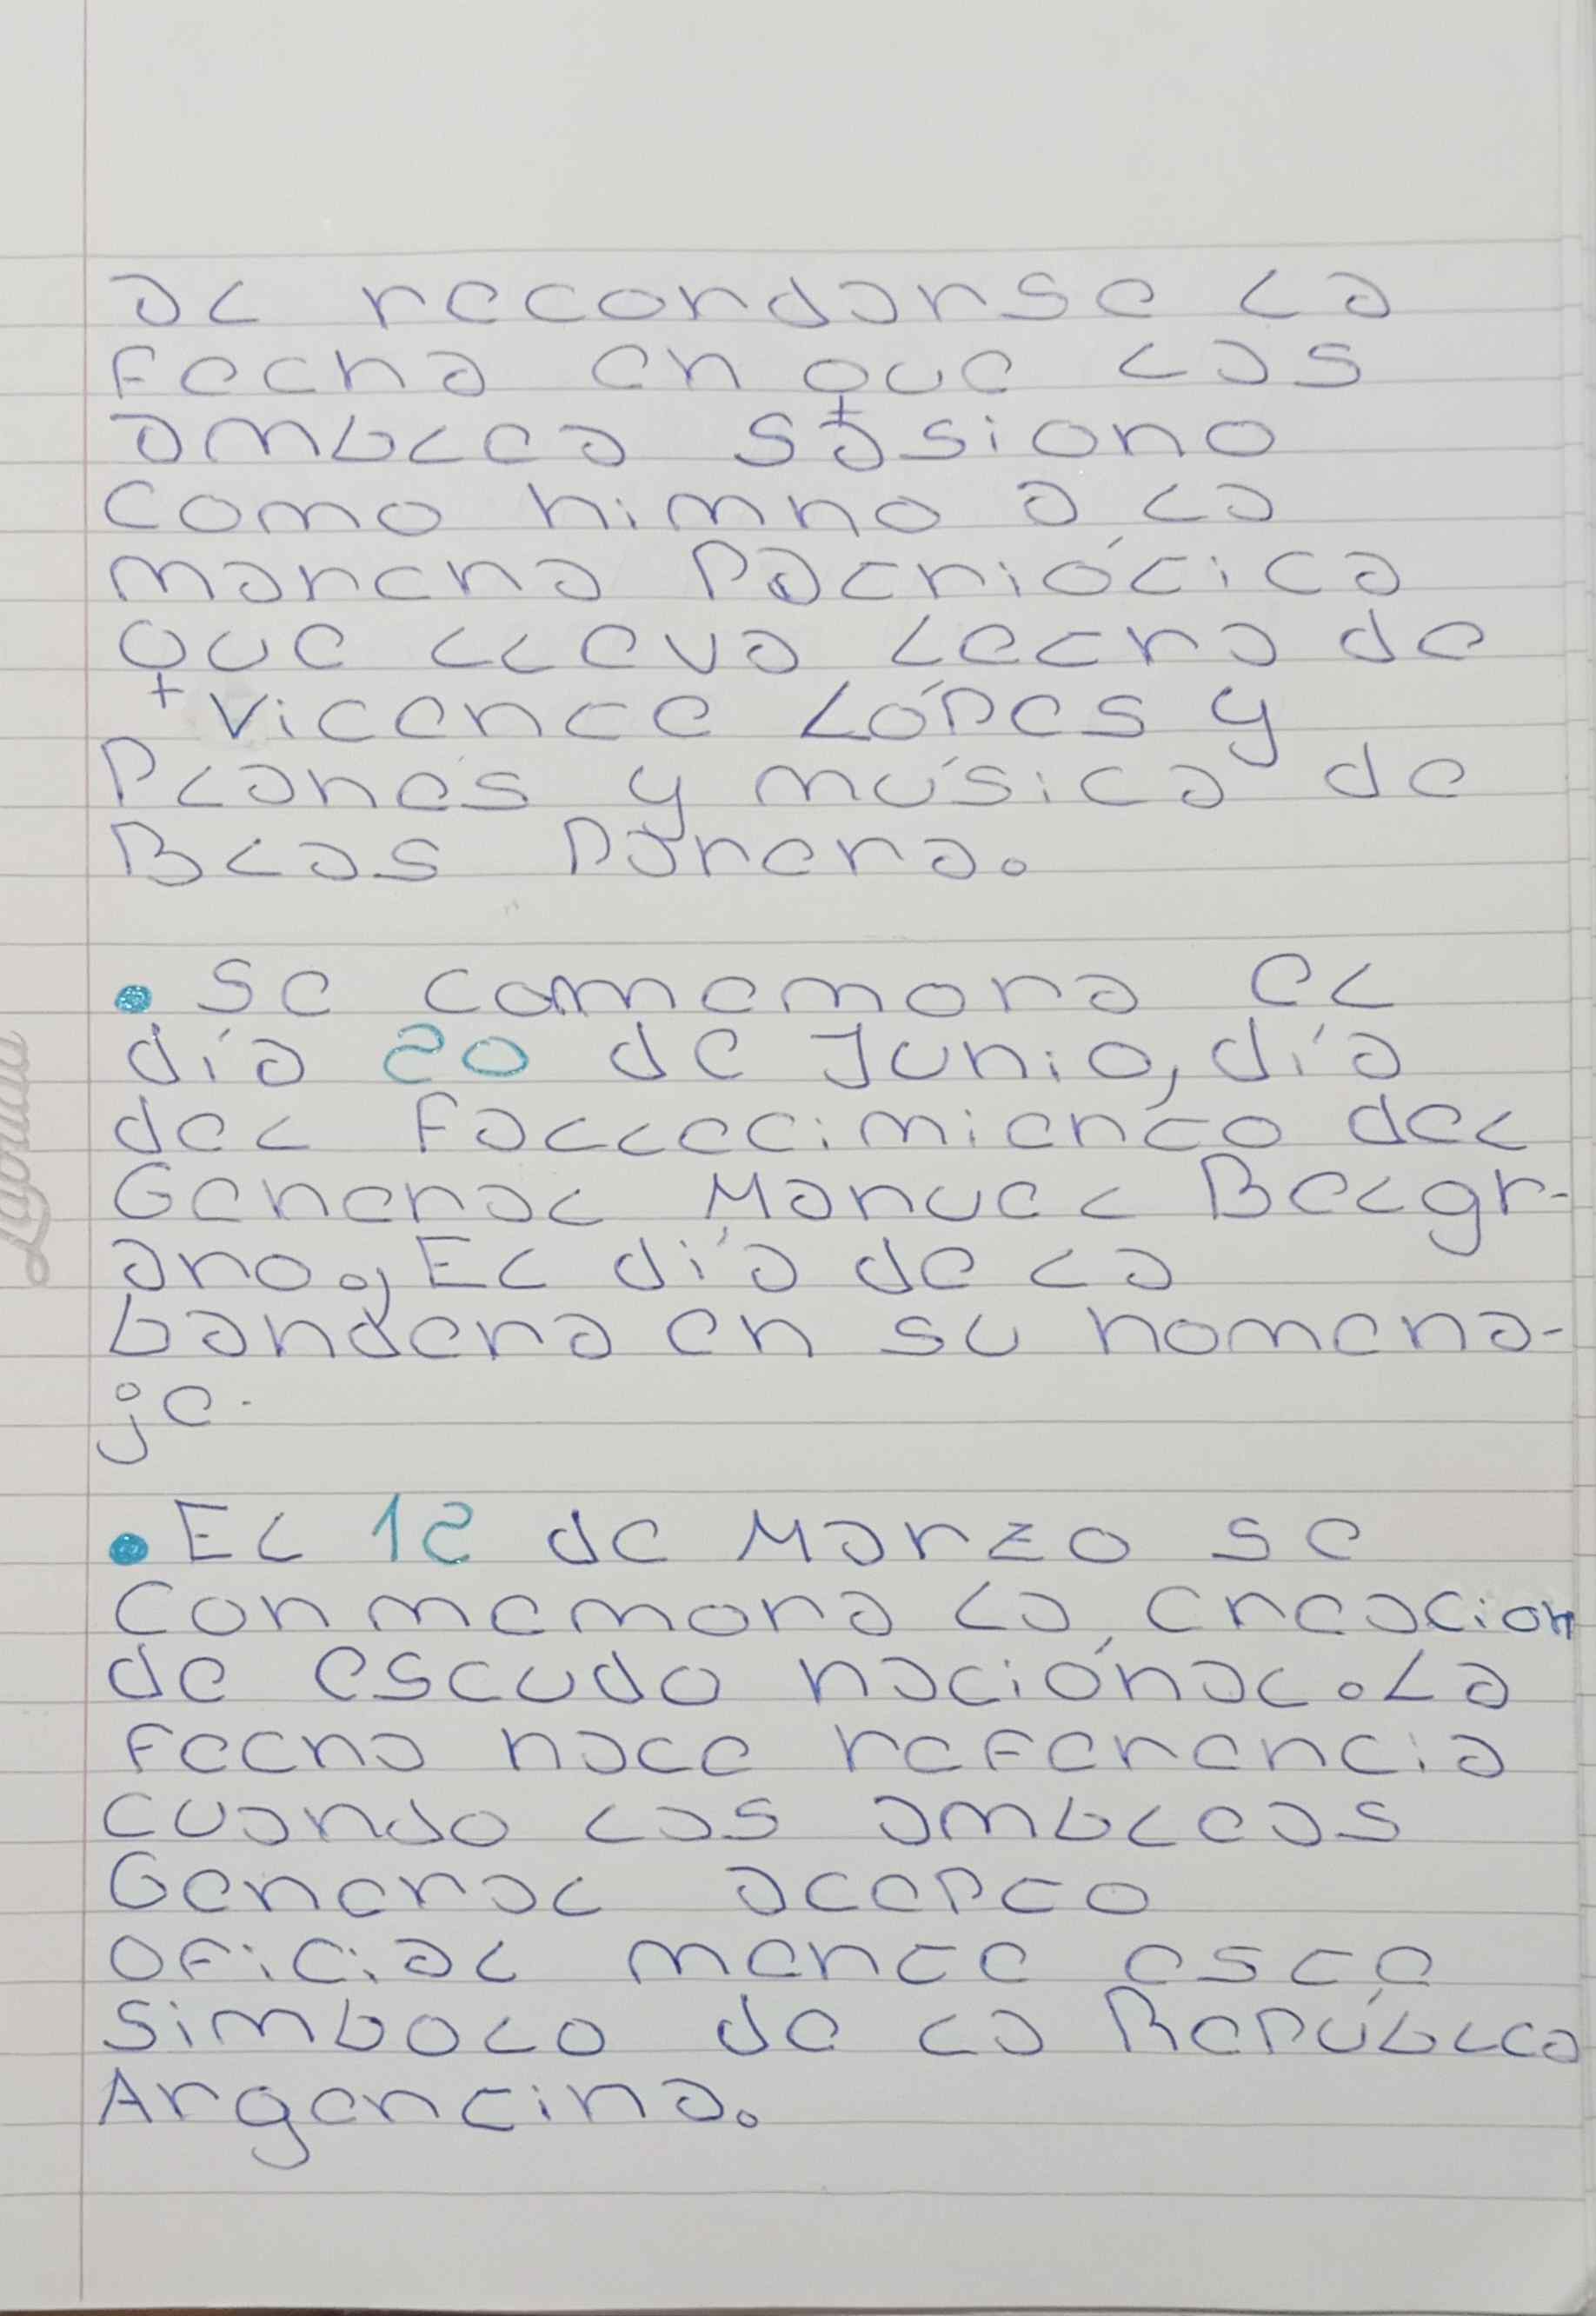 al recordarse la
fecha en que las
amblea sasiono
como himno a la
marcha Patriótica
que lleva letra de
Vicente Lópes y
Planes y música de
Blas Parera.
• Se comemora el
día 20 de Junio, día
del fallecimiento del
General Manuel Belgr-
ano., El día de la
bandera en su homena-
je.
• El 12 de Marzo se
conmemora la creacion
de escudo naciónal. La
fecha hace referencia
cuando las ambleas
General acepto
oficial mente este
simbolo de la Repúblca
Argentina.